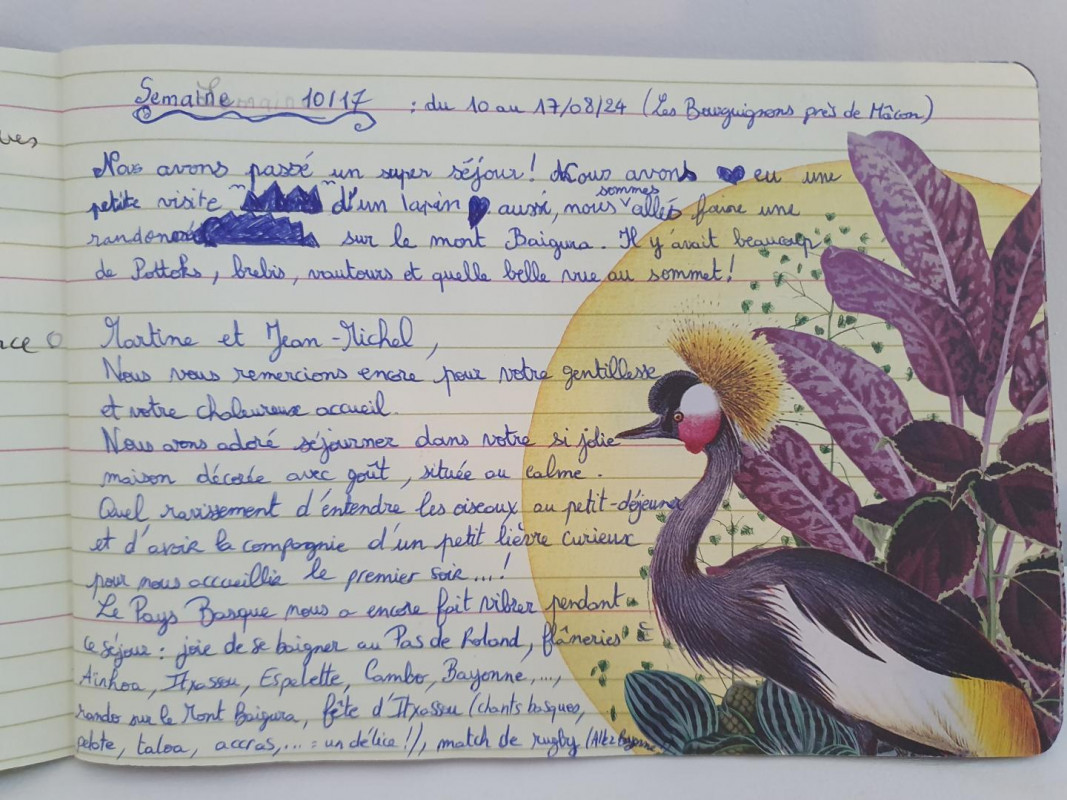 Semaine 10/17 : du 10 au 17/08/24 (Les Bourguignons près de Mâcon)
Nous avons passé un super séjour! Nous avons eu une
petite visite d'un lapin aussi, nous sommes allés faire une
randonnée sur le mont Baigura. Il y avait beaucoup
de Pottoks, brebis, vautours et quelle belle vue au sommet!
Martine et Jean-Michel,
Nous vous remercions encore pour votre gentillesse
et votre chaleureux accueil.
Nous avons adoré séjourner dans votre si jolie
maison décorée avec goût, située au calme.
Quel ravissement d'entendre les oiseaux au petit-déjeuner
et d'avoir la compagnie d'un petit lièvre curieux
pour nous accueillir le premier soir...!
Le Pays Basque nous a encore fait vibrer pendant
ce séjour : joie de se baigner au Pas de Roland, flâneries
Aïnhoa, Itxassou, Espelette, Cambo, Bayonne,...,
rando sur le Mont Baigura, fête d'Itxassou (chants basques,
pelote, taloa, accras,... = un délice!), match de rugby (Allez Bayonne
ves
nce